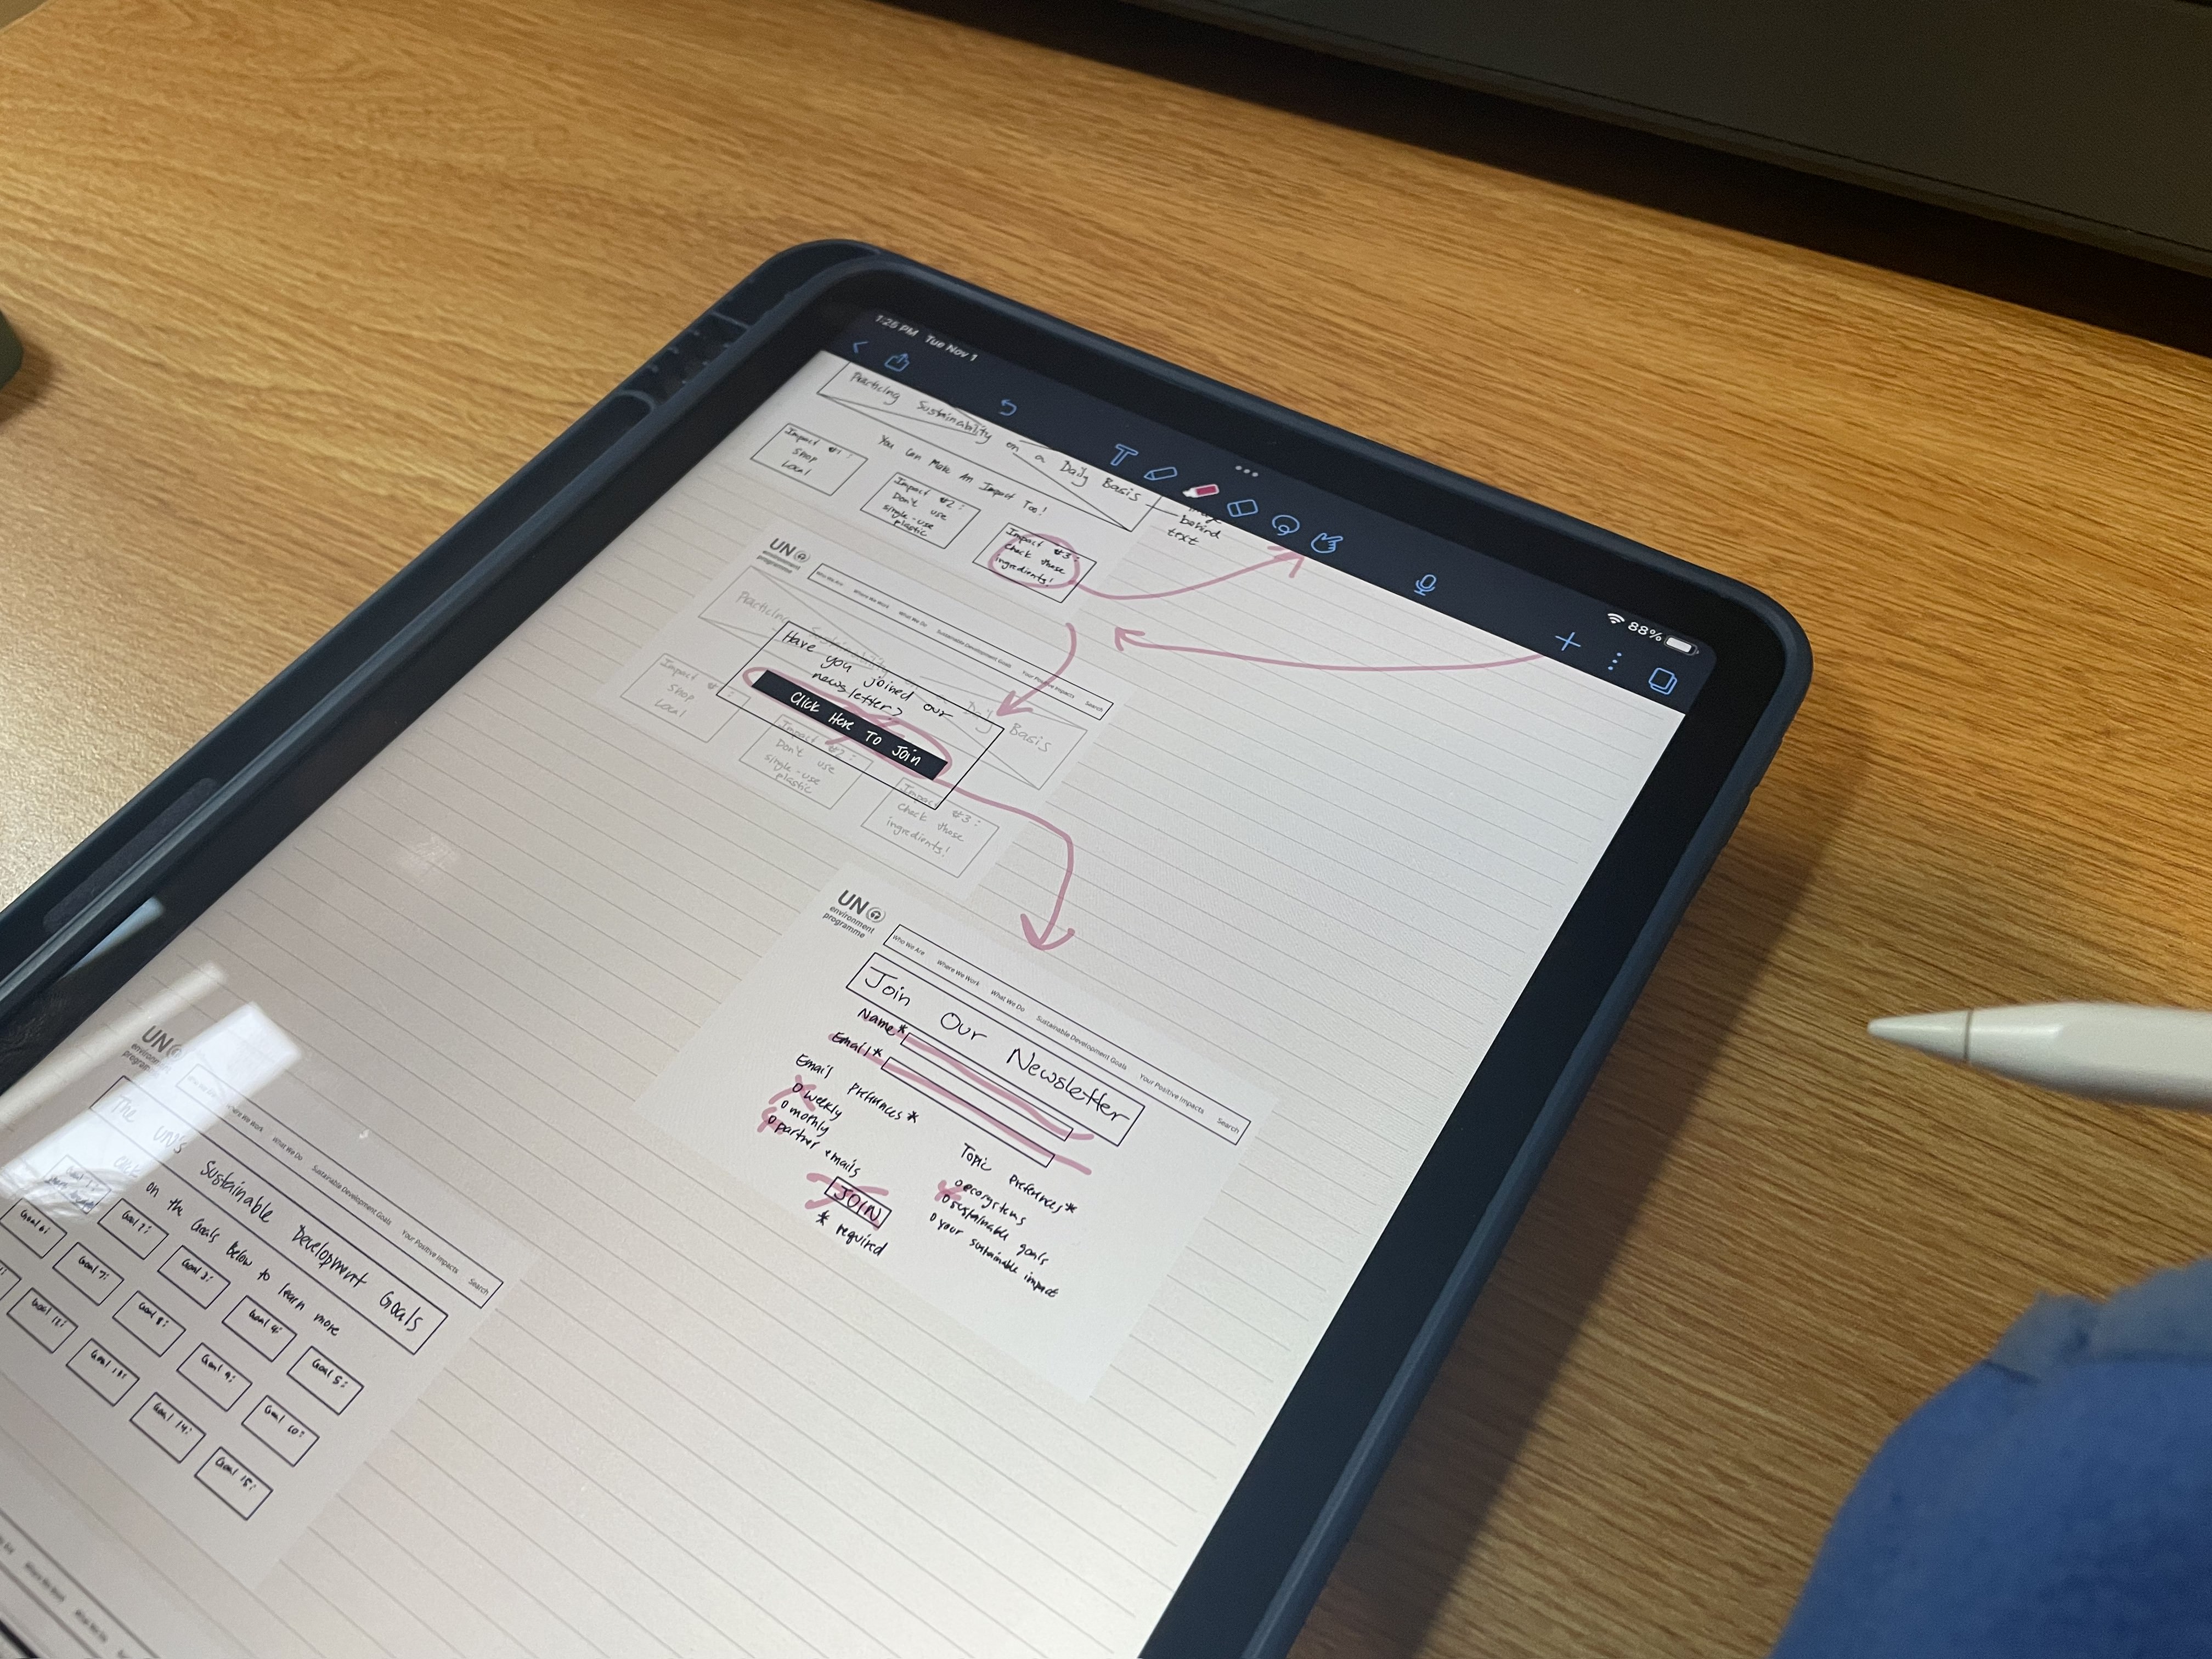 1:25 PM Tue Nov 1
88%
Practicing Sustainability on a Daily Basis
behind
text
You Can Make An Impact Too!
Impact #1:
Shop
Local
Impact #2:
Don't use
single-use
plastic
Impact #3:
Check those
ingredients!
UN
environment
programme
Who We Are
Where We Work
What We Do
Sustainable Development Goals
Your Positive Impacts
Search
Practicing Sustainability
Daily Basis
Have you joined our
newsletter?
Click Here To Join
Impact
Shop
Local
Impact #2:
Don't use
single-use
plastic
Impact #3:
Check those
ingredients!
UN
environment
programme
Who We Are
Where We Work
What We Do
Sustainable Development Goals
Your Positive Impacts
Search
Join Our Newsletter
Name*
Email*
Email Preferences*
o weekly
o monthly
o partner emails
Topic Preferences*
o ecosystems
o sustainable goals
o your sustainable impact
JOIN
* required
UN
Where We Work
What We Do
Sustainable Development Goals
Your Positive Impacts
Search
The UN's Sustainable Development Goals
Click on the Goals below to learn more
Goal 2:
Goal 3:
Goal 4:
Goal 5:
Goal 6:
Goal 7:
Goal 8:
Goal 9:
Goal 10:
Goal 12:
Goal 13:
Goal 14:
Goal 15:
Where We Work
What We Do